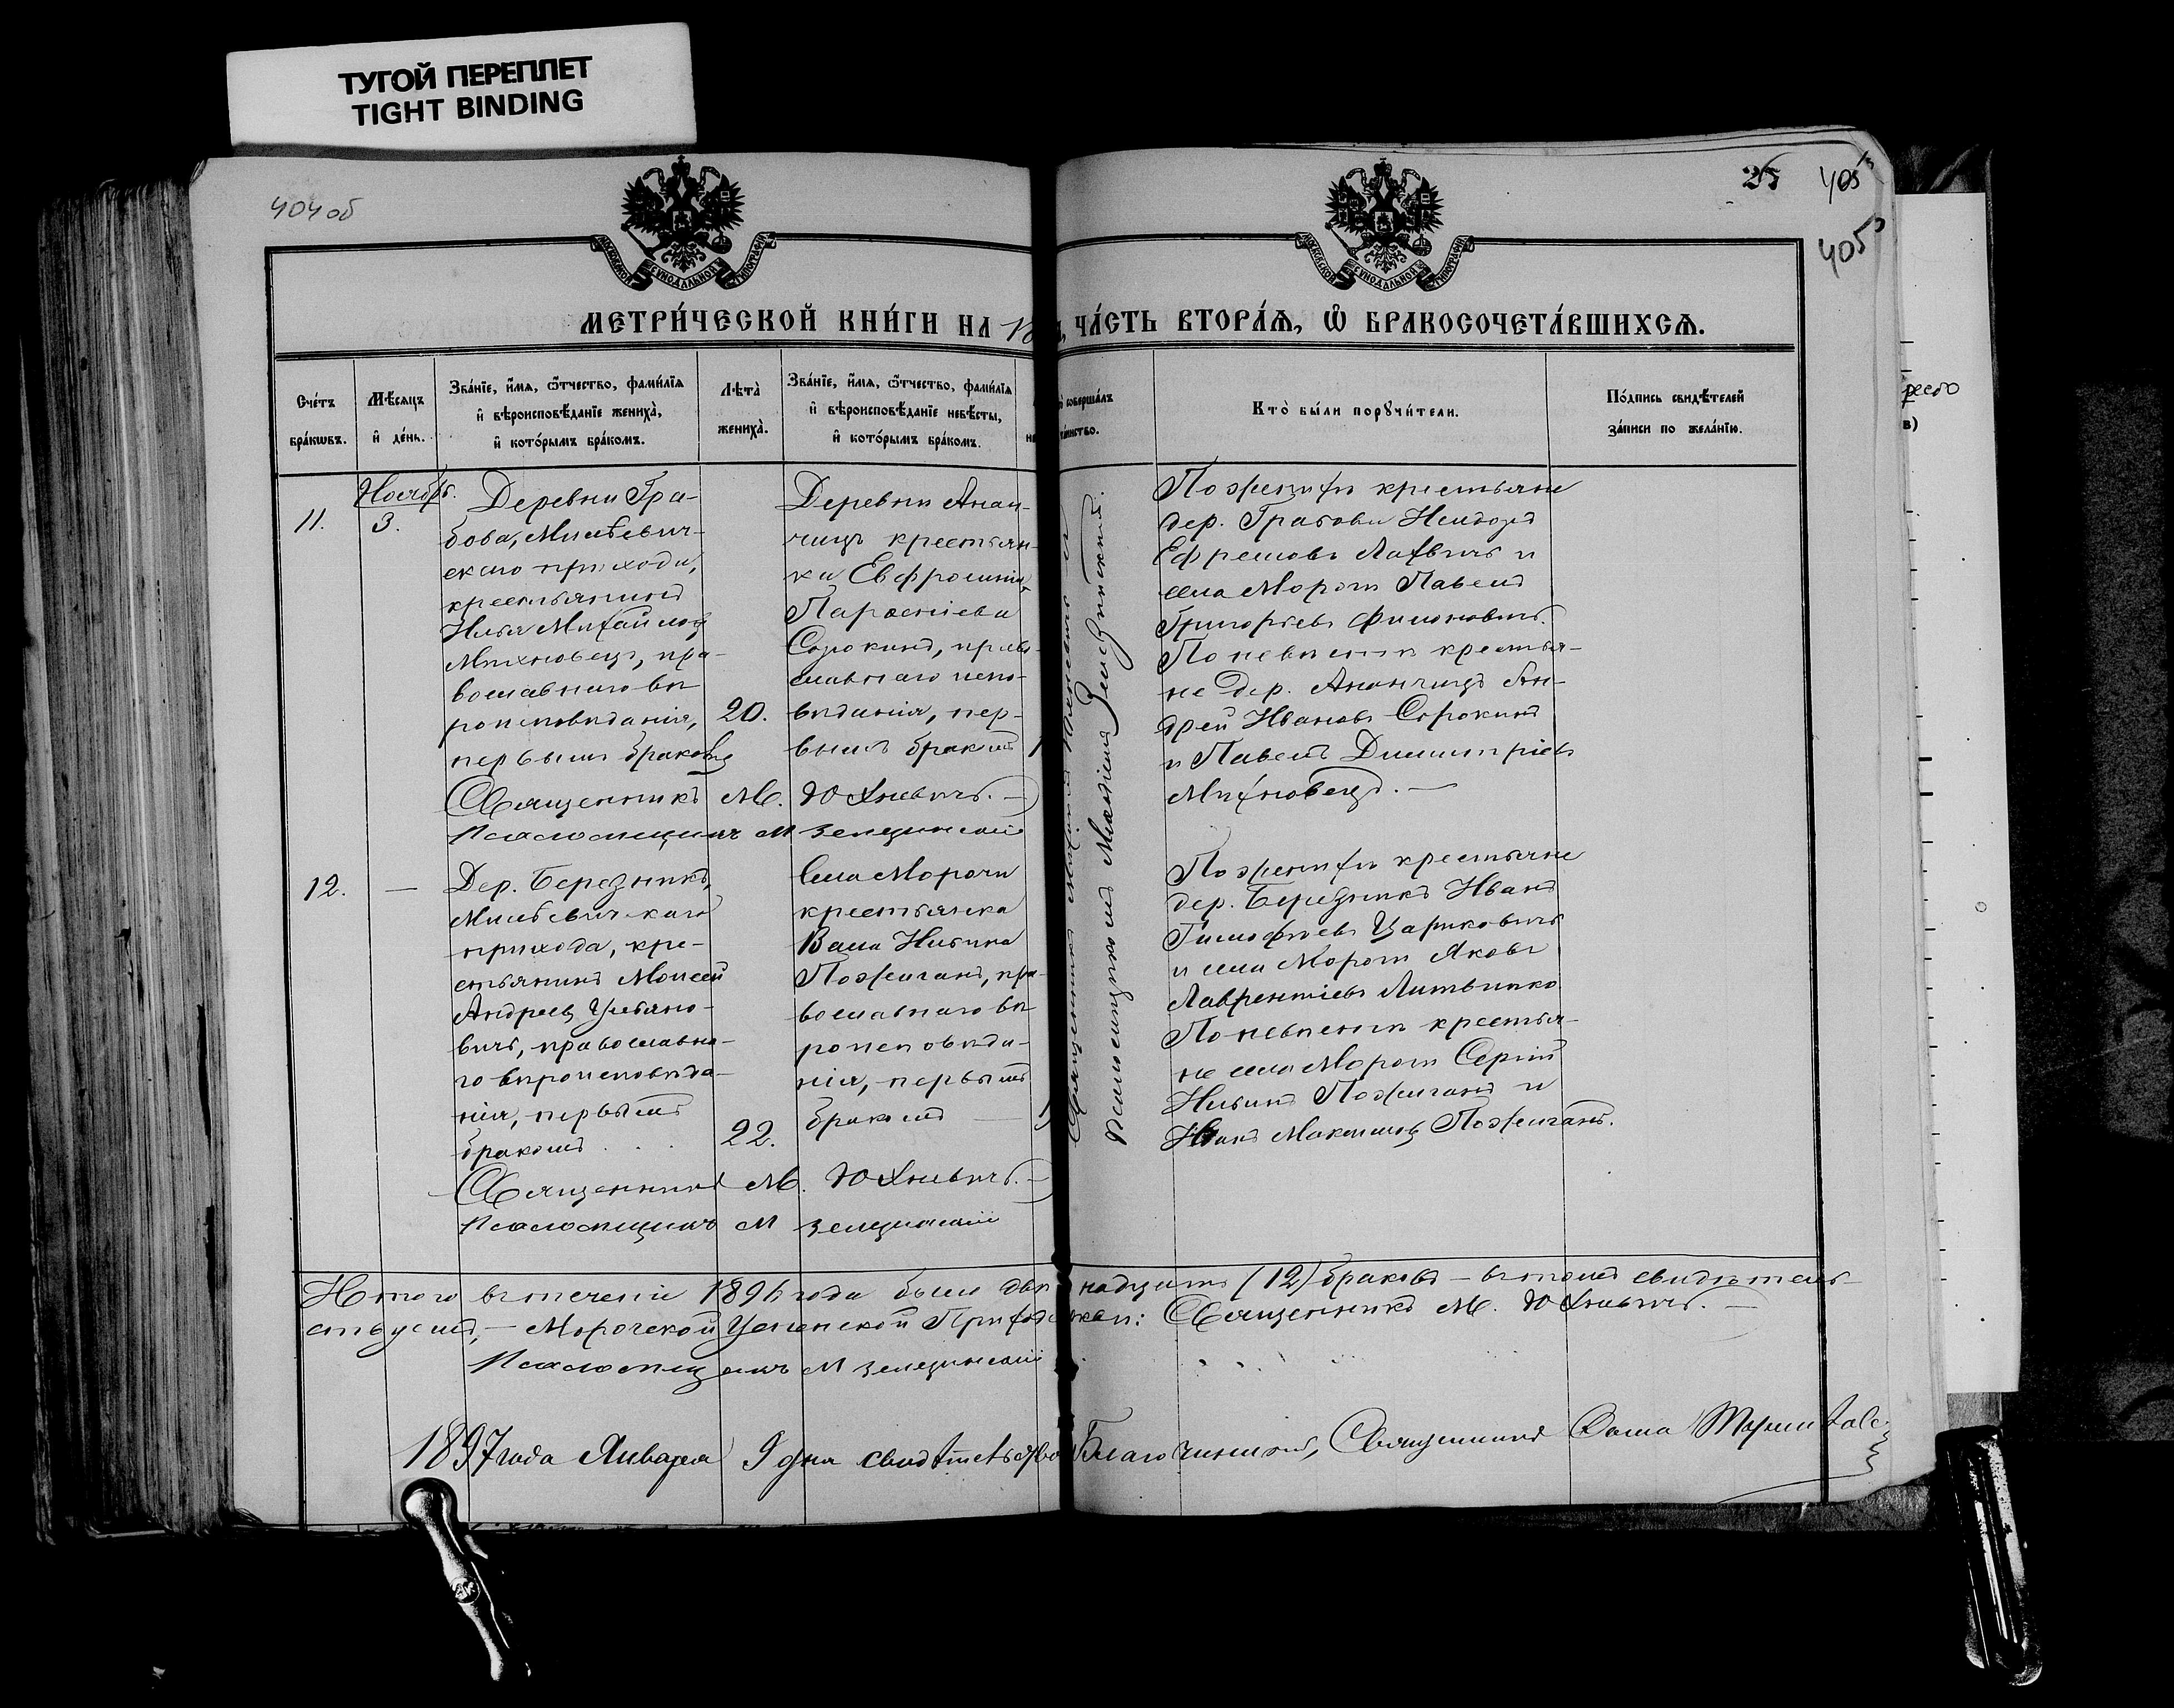 ТУГОЙ ПЕРЕПЛЕТ
TIGHT BINDING
404 об
25
405
405
МЕТРИ́ЧЕСКОЙ КНИ́ГИ НА 18
ЧА́СТЬ ВТОРА́Ѧ, Ѽ БРАКОСОЧЕТА́ВШИХСѦ.
Сче́тъ бра́кѡвъ.
Мѣ́сяцъ и҆ де́нь.
Зва́нїе, и҆́мѧ, ѻ҆́тчество, фами́лїѧ
и҆ вѣроисповѣ́данїе жениха̀,
и҆ кото́рымъ бра́комъ.
Лѣта̀
жениха̀.
Зва́нїе, и҆́мѧ, ѻ҆́тчество, фами́лїѧ
и҆ вѣроисповѣ́данїе невѣ́сты,
и҆ кото́рымъ бра́комъ.
соверша́лъ
Кто̀ бы́ли порꙋчи́тели.
По́дпись свидѣ́телей
за́писи по жела́нїю.
Ноябрь.
11.
3.
Деревни Гра-
бова, Милевич-
скаго прихода,
крестьянинъ
Илья Михайловъ
Михновецъ, пра-
вославнаго вѣ-
роисповѣданія,
первымъ бракомъ
20.
Деревни Анан-
чицъ крестьян-
ка Евфросинія
Парѳеніева
Сорокина, право-
славнаго испо-
вѣданія, пер-
вымъ бракомъ
По женихѣ крестьяне
дер. Грабова
Ефремовъ и
села Морочи Павелъ
Григорьевъ Филоновичъ.
По невѣстѣ крестья-
не дер. Ананчицъ Ан-
дрей Ивановъ Сорокинъ
и Павелъ Димитріевъ
Михновецъ. —
Священникъ М. Юхневичъ. —
Псаломщикъ М Зелезинскій
12.
—
Дер. Березникъ,
Милевичскаго
прихода, кре-
стьянинъ Моисей
Андреевъ Ульяно-
вичъ, православна-
го вѣроисповѣда-
нія, первымъ
бракомъ
22.
Села Морочи
крестьянка
Ильина
Пожиганъ, пра-
вославнаго вѣ-
роисповѣда-
нія, первымъ
бракомъ —
По женихѣ крестьяне
дер. Березникъ Иванъ
Тимофеевъ Цариковичъ
и села Морочи Яковъ
Лаврентіевъ Литвинко
По невѣстѣ крестья-
не села Морочи Сергій
Ильинъ Пожиганъ и
Иванъ Максимовъ Пожиганъ.
Священникъ М. Юхневичъ. —
Псаломщикъ М Зелезинскій
Священникъ Михаилъ Юхневичъ и
Псаломщикомъ Михаиломъ Зелезинскимъ.
Итого въ теченіе 1896 года было двѣнадцать (12) браковъ — въ томъ свидѣтель-
ствуемъ, — Морочской Успенской Приходской церкви: Священникъ М. Юхневичъ. —
Псаломщикъ М Зелезинскій
1897 года Января 9 дня свидѣтельствовалъ Благочинный, Священникъ Ѳома